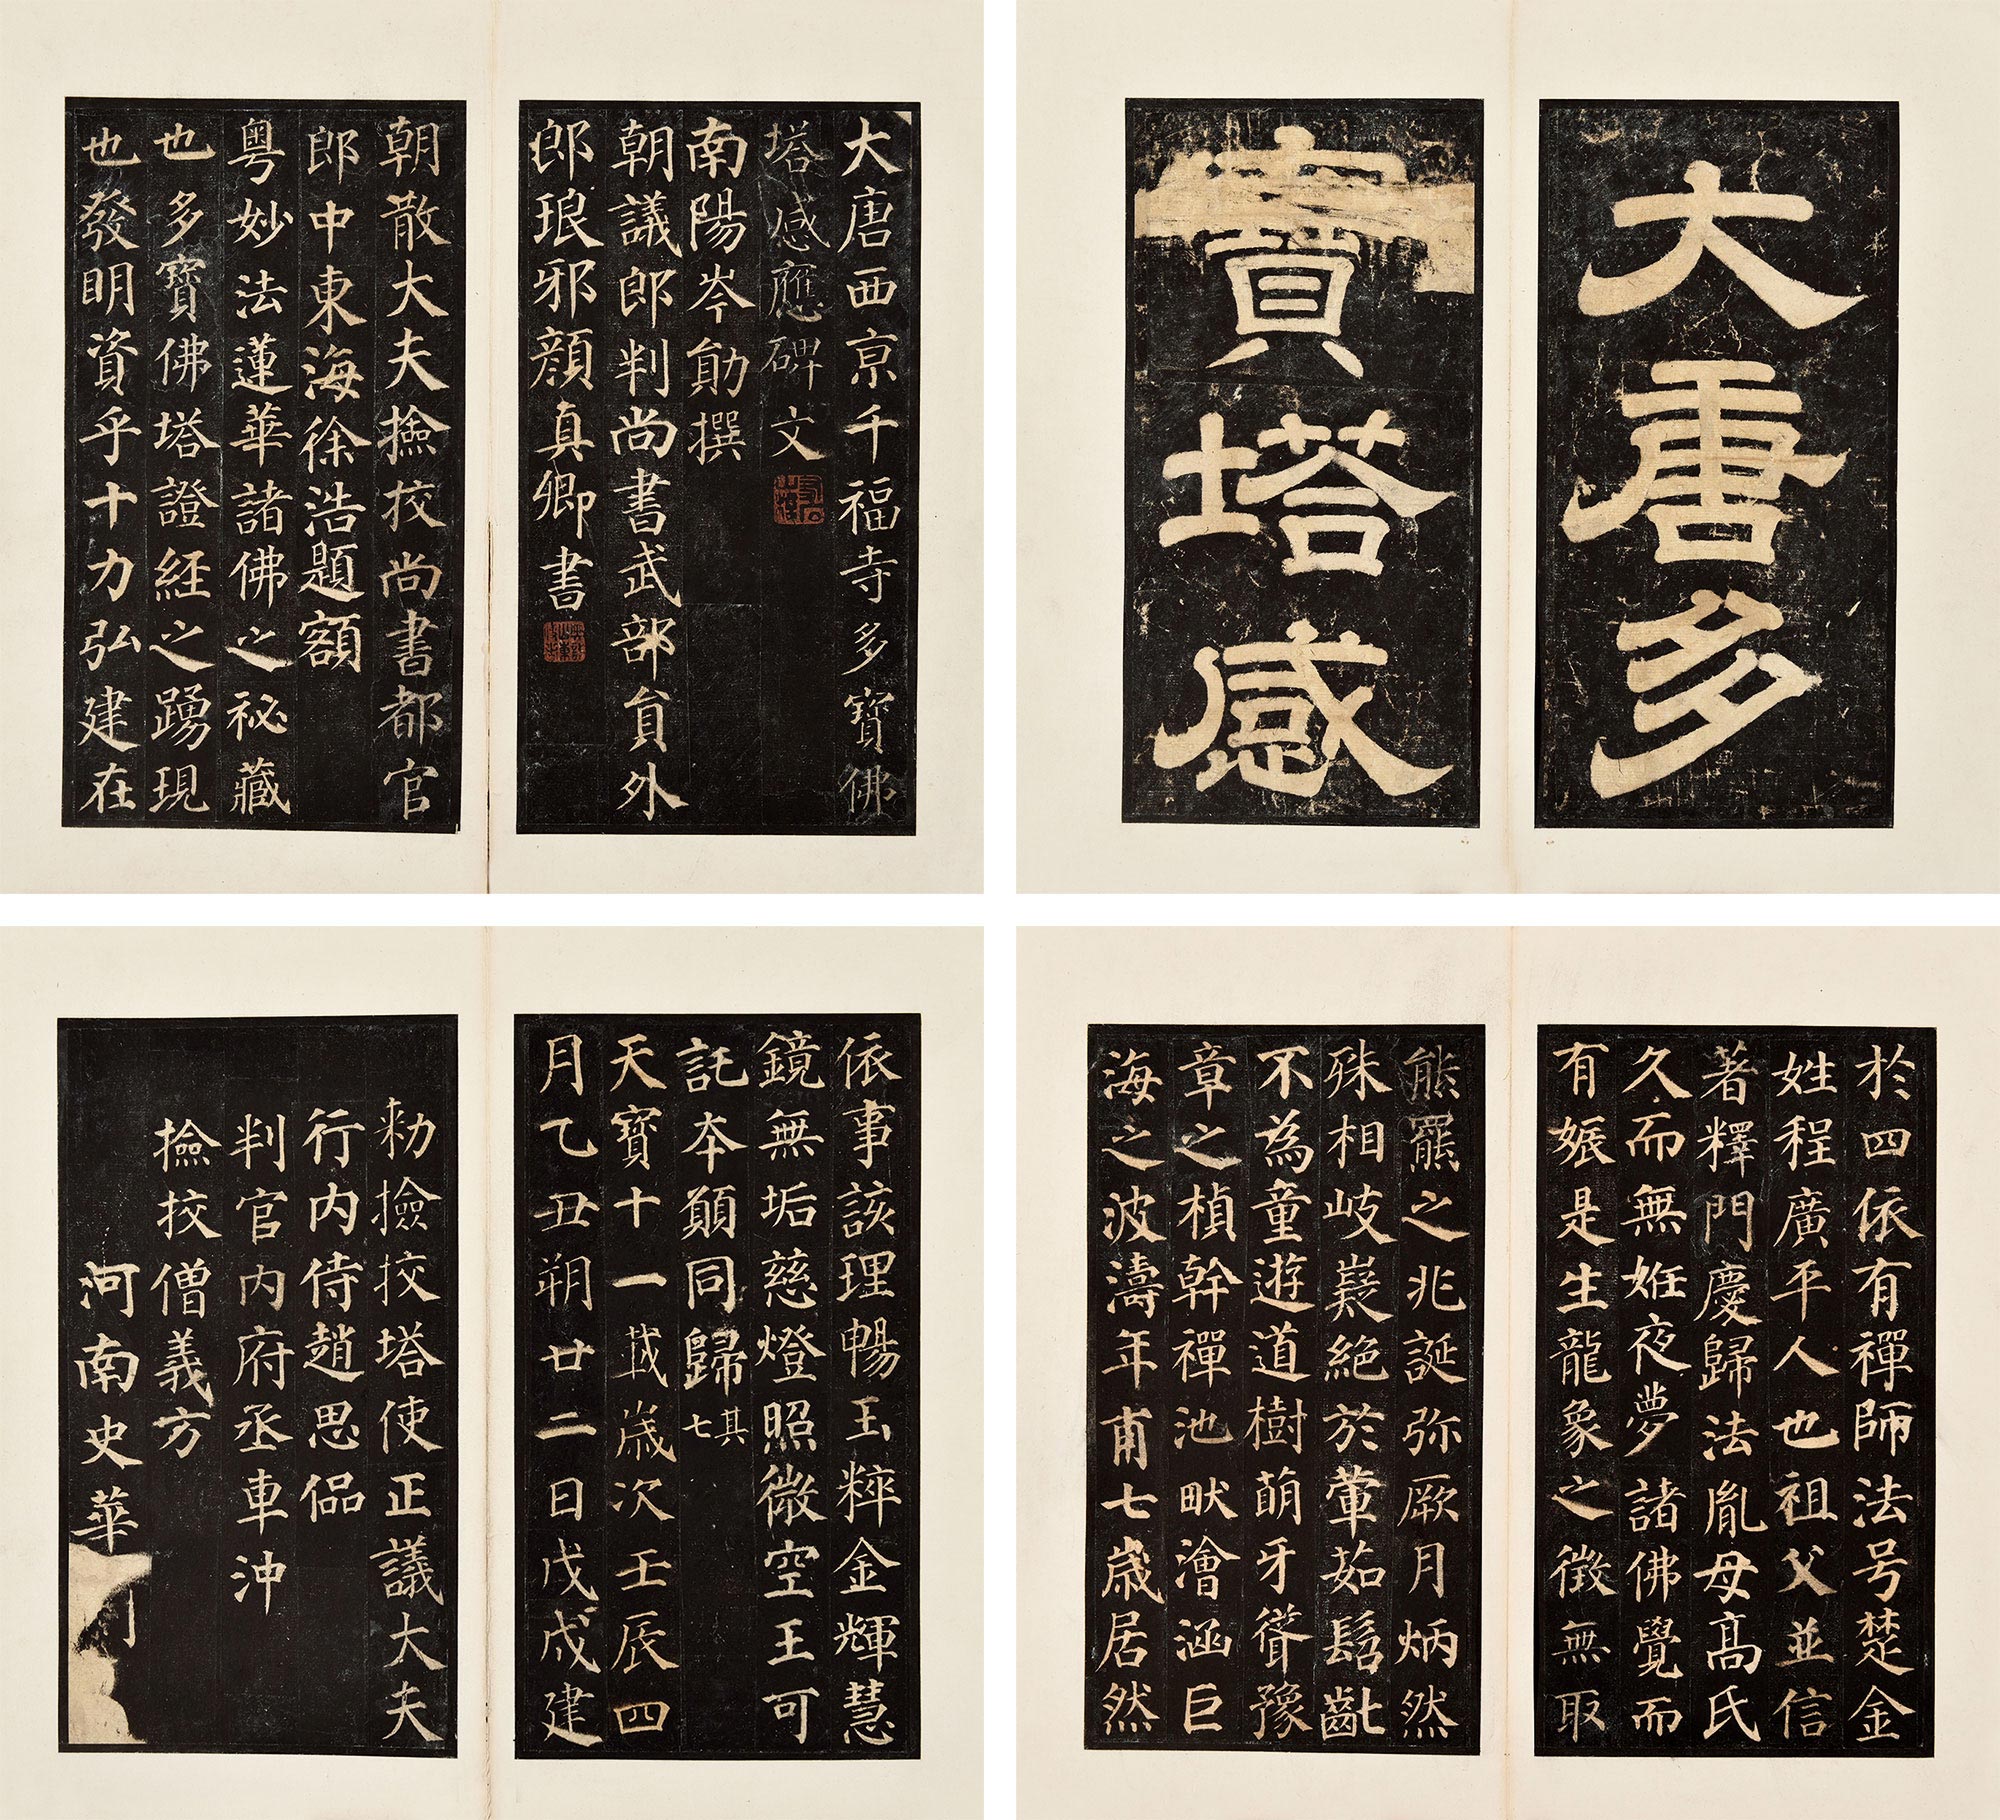 大唐多
寶塔感
大唐西京千福寺多寶佛
塔感應碑文
南陽岑勛撰
朝議郎判尚書武部員外
郎琅邪顏真卿書
朝散大夫撿挍尚書都官
郎中東海徐浩題額
粵妙法蓮華諸佛之祕藏
也多寶佛塔證經之踴現
也發明資乎十力弘建在
於四依有禪師法号楚金
姓程廣平人也祖父並信
著釋門慶歸法胤母高氏
久而無姙夜夢諸佛覺而
有娠是生龍象之徵無取
熊羆之兆誕弥厥月炳然
殊相岐嶷絕於葷茹髫齔
不為童遊道樹萌牙聳豫
章之楨幹禪池畎澮涵巨
海之波濤年甫七歲居然
依事該理暢玉粹金輝慧
鏡無垢慈燈照微空王可
託本願同歸其七
天寶十一載歲次壬辰四
月乙丑朔廿二日戊戌建
勑撿挍塔使正議大夫
行內侍趙思偘
判官內府丞車沖
撿挍僧義方
河南史華